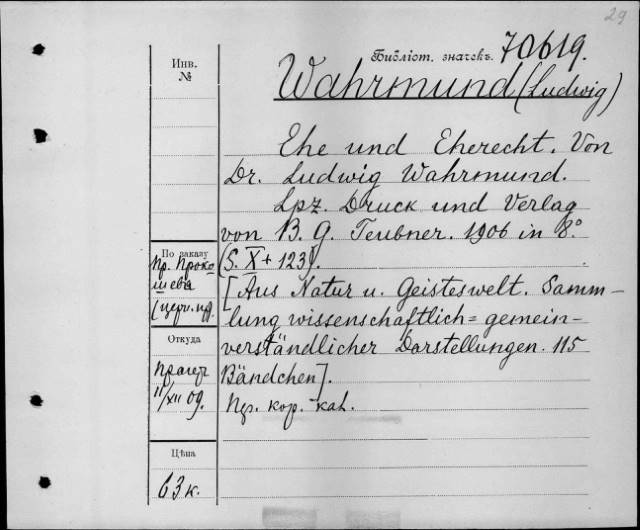 29
Библіот. значекъ. 70619.
Инв.
№
Wahrmund (Ludwig)
Ehe und Eherecht. Von
Dr. Ludwig Wahrmund.
Lpz. Druck und Verlag
von B. G. Teubner. 1906 in 8.°
(S. X + 123).
По заказу
Пр. Проко
шева
(церк. пр).
[Aus Natur u. Geisteswelt. Samm-
lung wissenschaftlich = gemein-
verständlicher Darstellungen. 115
Bändchen].
Откуда
Прагер
11/XII 09.
кор. кат.
Цѣна
63 к.